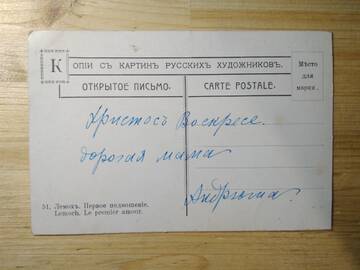 Копіи съ картинъ русскихъ художниковъ.
ОТКРЫТОЕ ПИСЬМО.
CARTE POSTALE.
Мѣсто
для
марки.
Христосъ Воскресе.
дорогая мама
Андрюша
51. Лемохъ. Первое подношеніе.
Lemoch. Le premier amour.